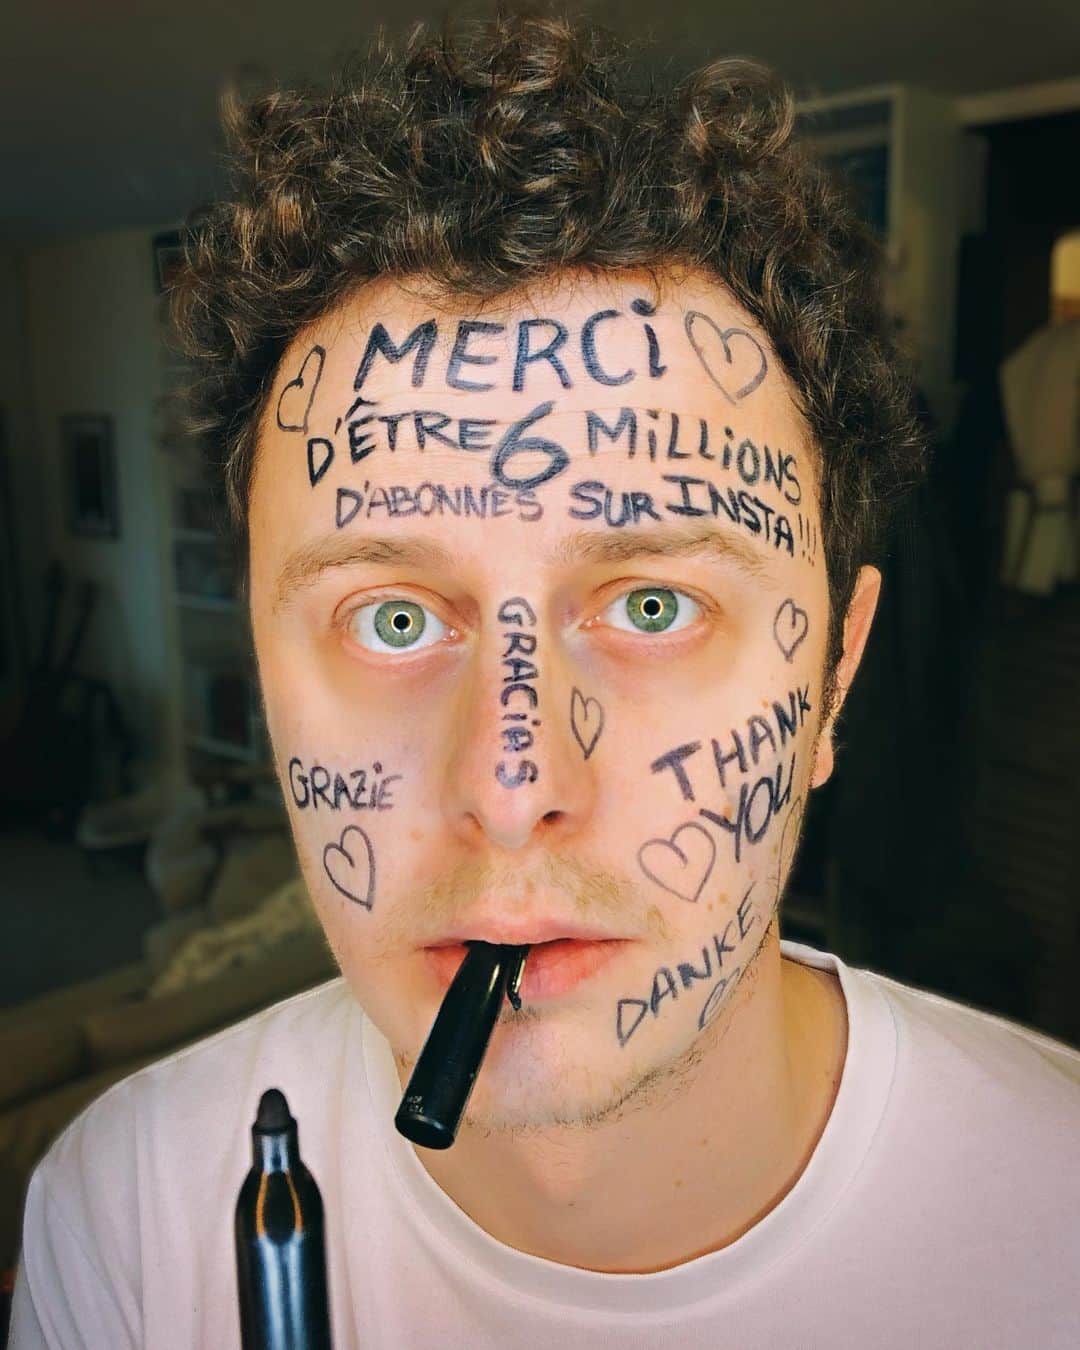 MERCi
D'ÊTRE 6 MiLLiONS
D'ABONNÉS SUR INSTA!!!
GRACiAS
GRAZiE
THANK
YOU
DANKE